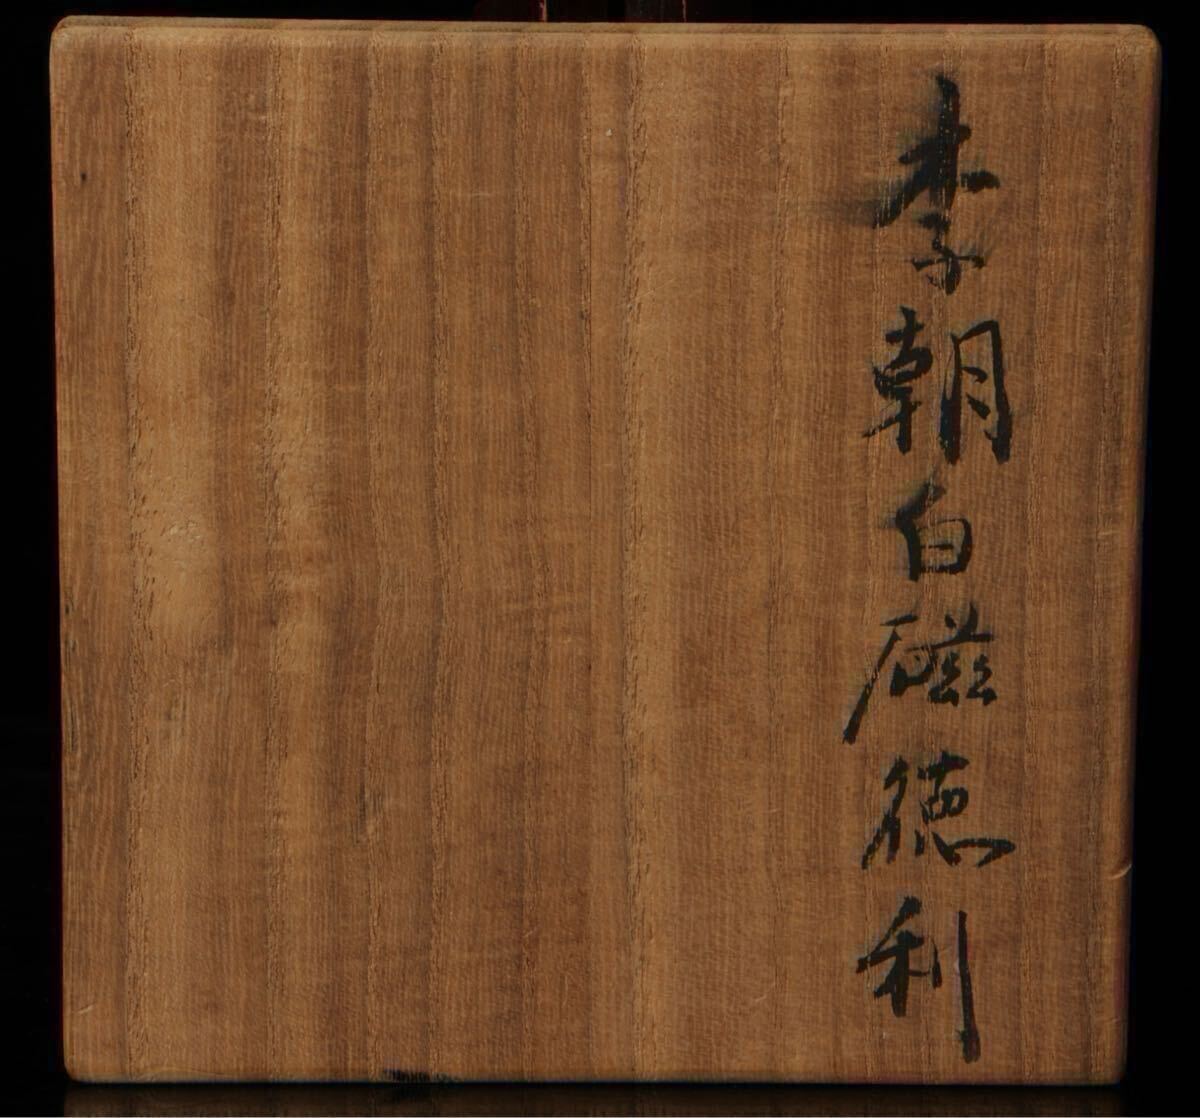 李朝白磁徳利